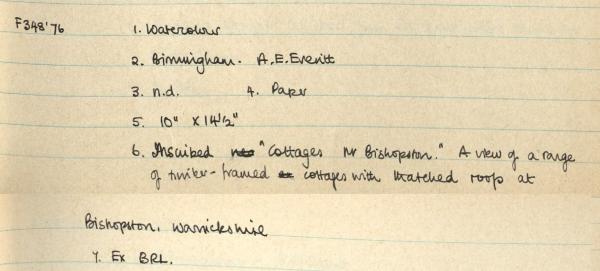 F348'76
1. Watercolour
2. Birmingham. A.E. Everitt
3. n.d. 4. Paper
5. 10" x 14½"
6. Inscribed "Cottages Nr Bishopston." A view of a range
of timber-framed cottages with thatched roofs at
Bishopston, Warwickshire
7. Ex BRL.